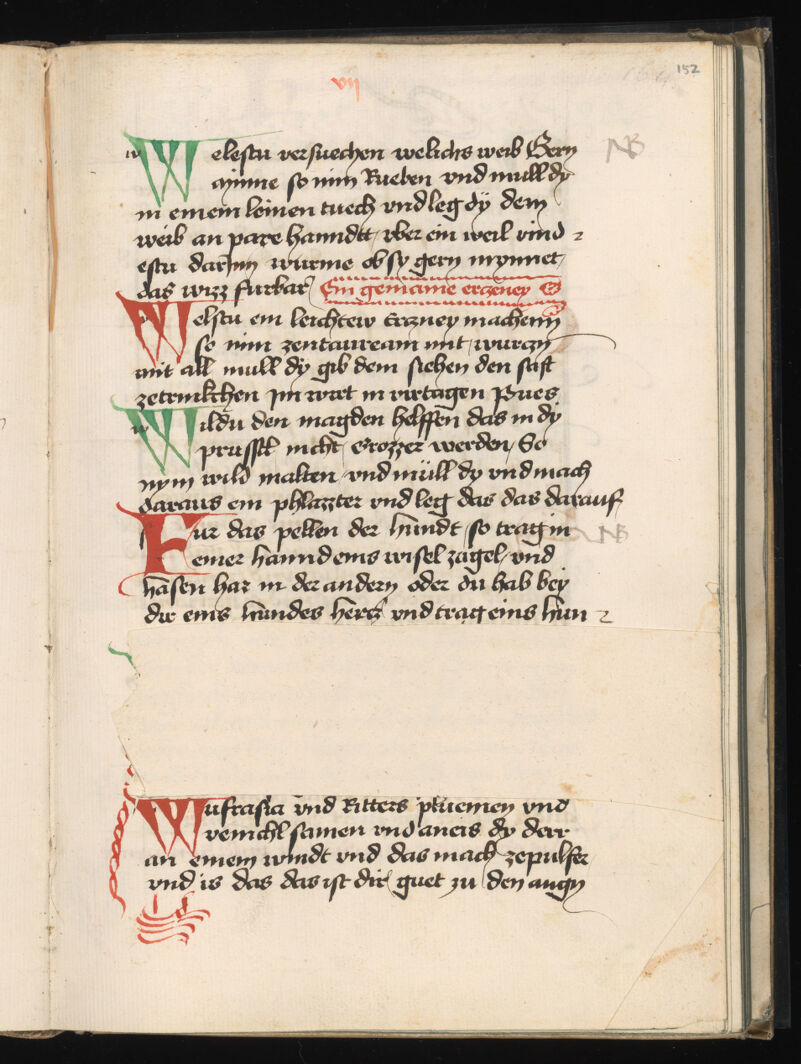 vij
152
Welestu versuechen welichs weib Gern
mynne so nim Rueben vnd mull dy
in einem leinen tuech vnd leg dÿ dem
weib an pare hanndtt vber ein weil vind
estu darinn würme ob sy gern mynnet
das wizz furbar Ein gemaine erczeney
NB
Welstu ein leichtew Erczney machenn
so nim zentauream mit wurczn
mit all mull dÿ gib dem siechen den saft
zetrinkchen im wirt in virtagen Pues
Wildu den magden helffen das in dÿ
prüsstl nicht Grozzer werden So
nym wild malten vnd müll dy vnd mach
daraus ein phlazzter vnd leg das das darauf
Fur das pellen der hundt so trag in
einer hannd eins wisel zagel vnd
NB
hasen har in der andern oder du hab bey
dir eins hundes hercz vnd trag eins hun
Wufrasia vnd Ritters plüemen vnd
venichl samen vnd aneis dy derr
an einem windt vnd das mach zepulfer
vnd is das das ist dir guet zu den augn